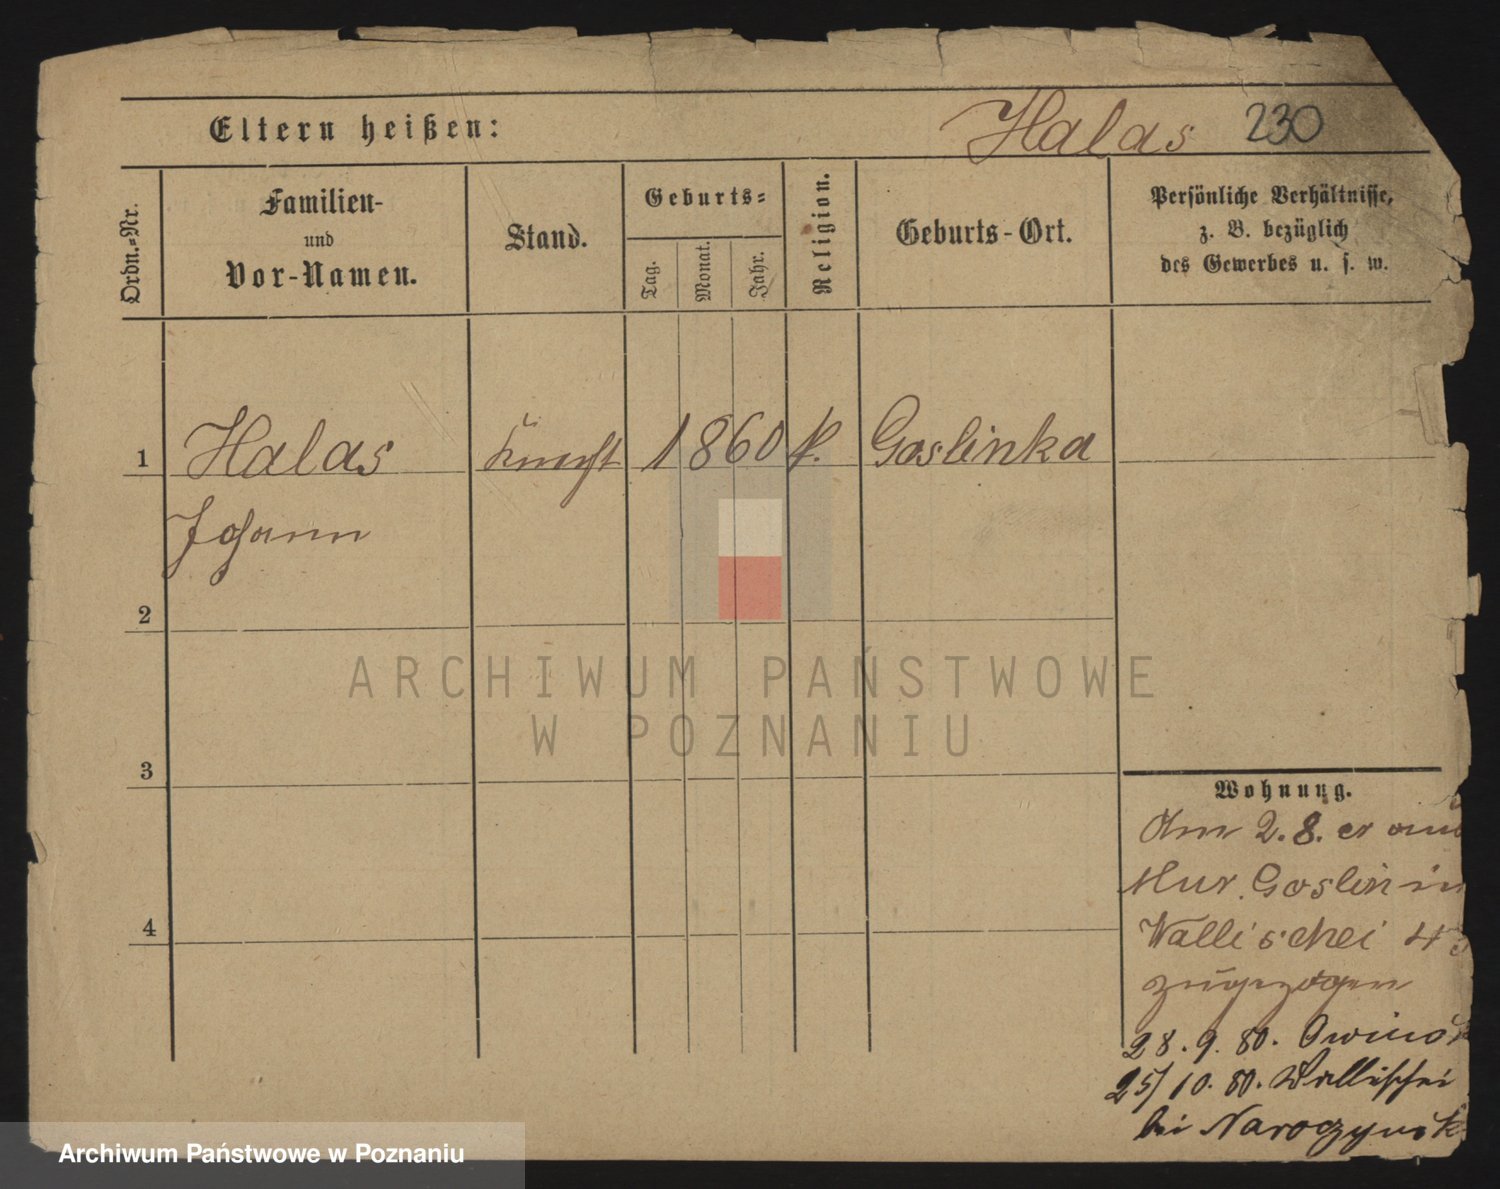 Eltern heißen:
Halas 230
Ordn.=Nr.
Familien-
und
Vor-Namen.
Stand.
Geburts=
Tag.
Monat.
Jahr.
Religion.
Geburts-Ort.
Persönliche Verhältnisse,
z. B. bezüglich
des Gewerbes u. s. w.
1 Halas Knecht 1860 k. Goslinka
Johann
2
3
4
Wohnung.
Am 2.8. er aus
Mur. Goslin in
Wallischei
zugezogen
28.9.80.
25/10.80. Wallischei
bei
ARCHIWUM PAŃSTWOWE
W POZNANIU
Archiwum Państwowe w Poznaniu